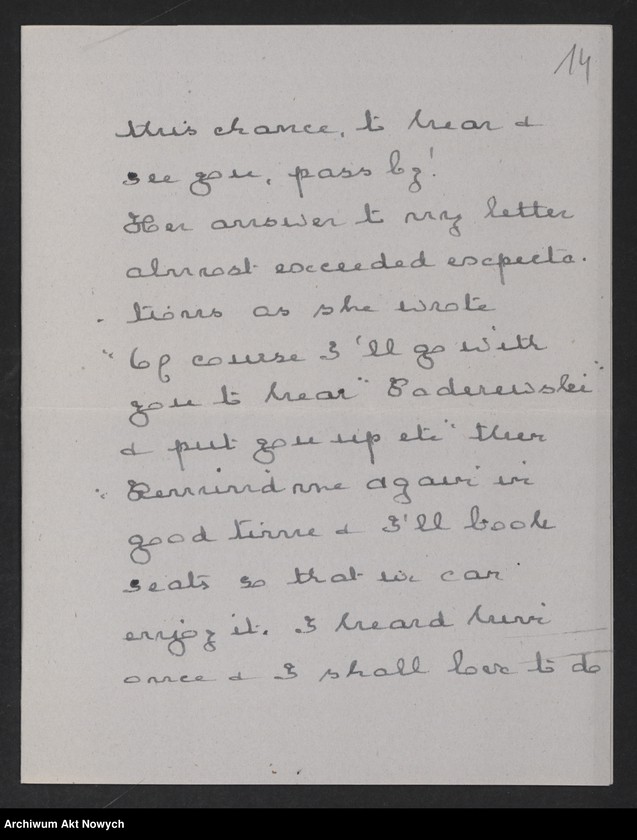 14
this chance, to hear &
see you, pass by!
Her answer to my letter
almost exceeded expecta-
- tions as she wrote
"Of course I'll go with
you to hear "Paderewski"
& put you up etc" then
"Remind me again in
good time & I'll book
seats so that we can
enjoy it. I heard him
once & I shall love to do
Archiwum Akt Nowych